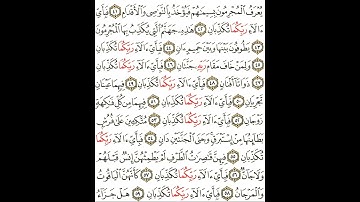 يُعْرَفُ ٱلْمُجْرِمُونَ بِسِيمَٰهُمْ فَيُؤْخَذُ بِٱلنَّوَٰصِى وَٱلْأَقْدَامِ ٤١
فَبِأَىِّ ءَالَآءِ رَبِّكُمَا تُكَذِّبَانِ ٤٢ هَٰذِهِۦ جَهَنَّمُ ٱلَّتِى يُكَذِّبُ بِهَا ٱلْمُجْرِمُونَ
٤٣ يَطُوفُونَ بَيْنَهَا وَبَيْنَ حَمِيمٍ ءَانٍ ٤٤ فَبِأَىِّ ءَالَآءِ رَبِّكُمَا تُكَذِّبَانِ
٤٥ وَلِمَنْ خَافَ مَقَامَ رَبِّهِۦ جَنَّتَانِ ٤٦ فَبِأَىِّ ءَالَآءِ رَبِّكُمَا تُكَذِّبَانِ
٤٧ ذَوَاتَآ أَفْنَانٍ ٤٨ فَبِأَىِّ ءَالَآءِ رَبِّكُمَا تُكَذِّبَانِ ٤٩ فِيهِمَا عَيْنَانِ
تَجْرِيَانِ ٥٠ فَبِأَىِّ ءَالَآءِ رَبِّكُمَا تُكَذِّبَانِ ٥١ فِيهِمَا مِن كُلِّ فَٰكِهَةٍ
زَوْجَانِ ٥٢ فَبِأَىِّ ءَالَآءِ رَبِّكُمَا تُكَذِّبَانِ ٥٣ مُتَّكِـِٔينَ عَلَىٰ فُرُشٍۭ
بَطَآئِنُهَا مِنْ إِسْتَبْرَقٍ وَجَنَى ٱلْجَنَّتَيْنِ دَانٍ ٥٤ فَبِأَىِّ ءَالَآءِ
رَبِّكُمَا تُكَذِّبَانِ ٥٥ فِيهِنَّ قَٰصِرَٰتُ ٱلطَّرْفِ لَمْ يَطْمِثْهُنَّ إِنسٌ قَبْلَهُمْ
وَلَا جَآنٌّ ٥٦ فَبِأَىِّ ءَالَآءِ رَبِّكُمَا تُكَذِّبَانِ ٥٧ كَأَنَّهُنَّ ٱلْيَاقُوتُ
وَٱلْمَرْجَانُ ٥٨ فَبِأَىِّ ءَالَآءِ رَبِّكُمَا تُكَذِّبَانِ ٥٩ هَلْ جَزَآءُ